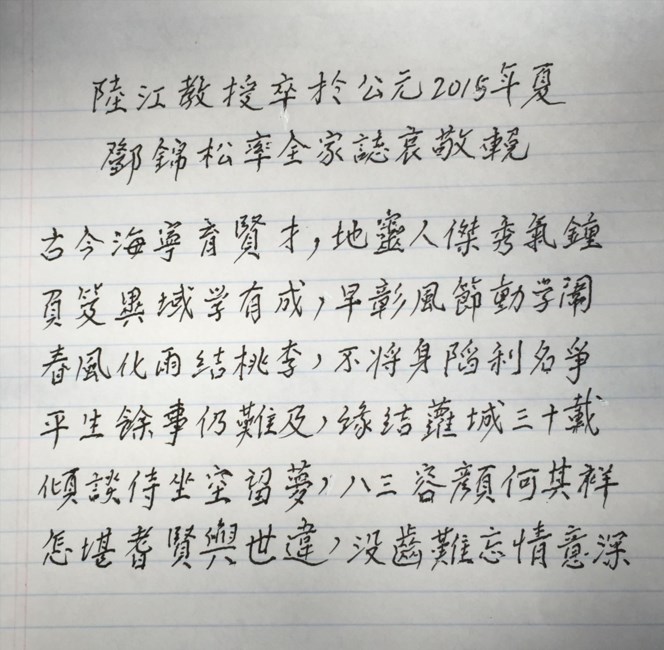 陸江教授卒於公元2015年夏
鄧錦松率全家誌哀敬輓
古今海寧育賢才，地靈人傑秀氣鐘
負笈異域学有成，早彰風節動学闈
春風化雨結桃李，不将身陷利名爭
平生餘事仍難及，缘結蘿城三十載
傾談侍坐空留夢，八三容顏何其祥
怎堪耆賢與世違，没齒難忘情意深